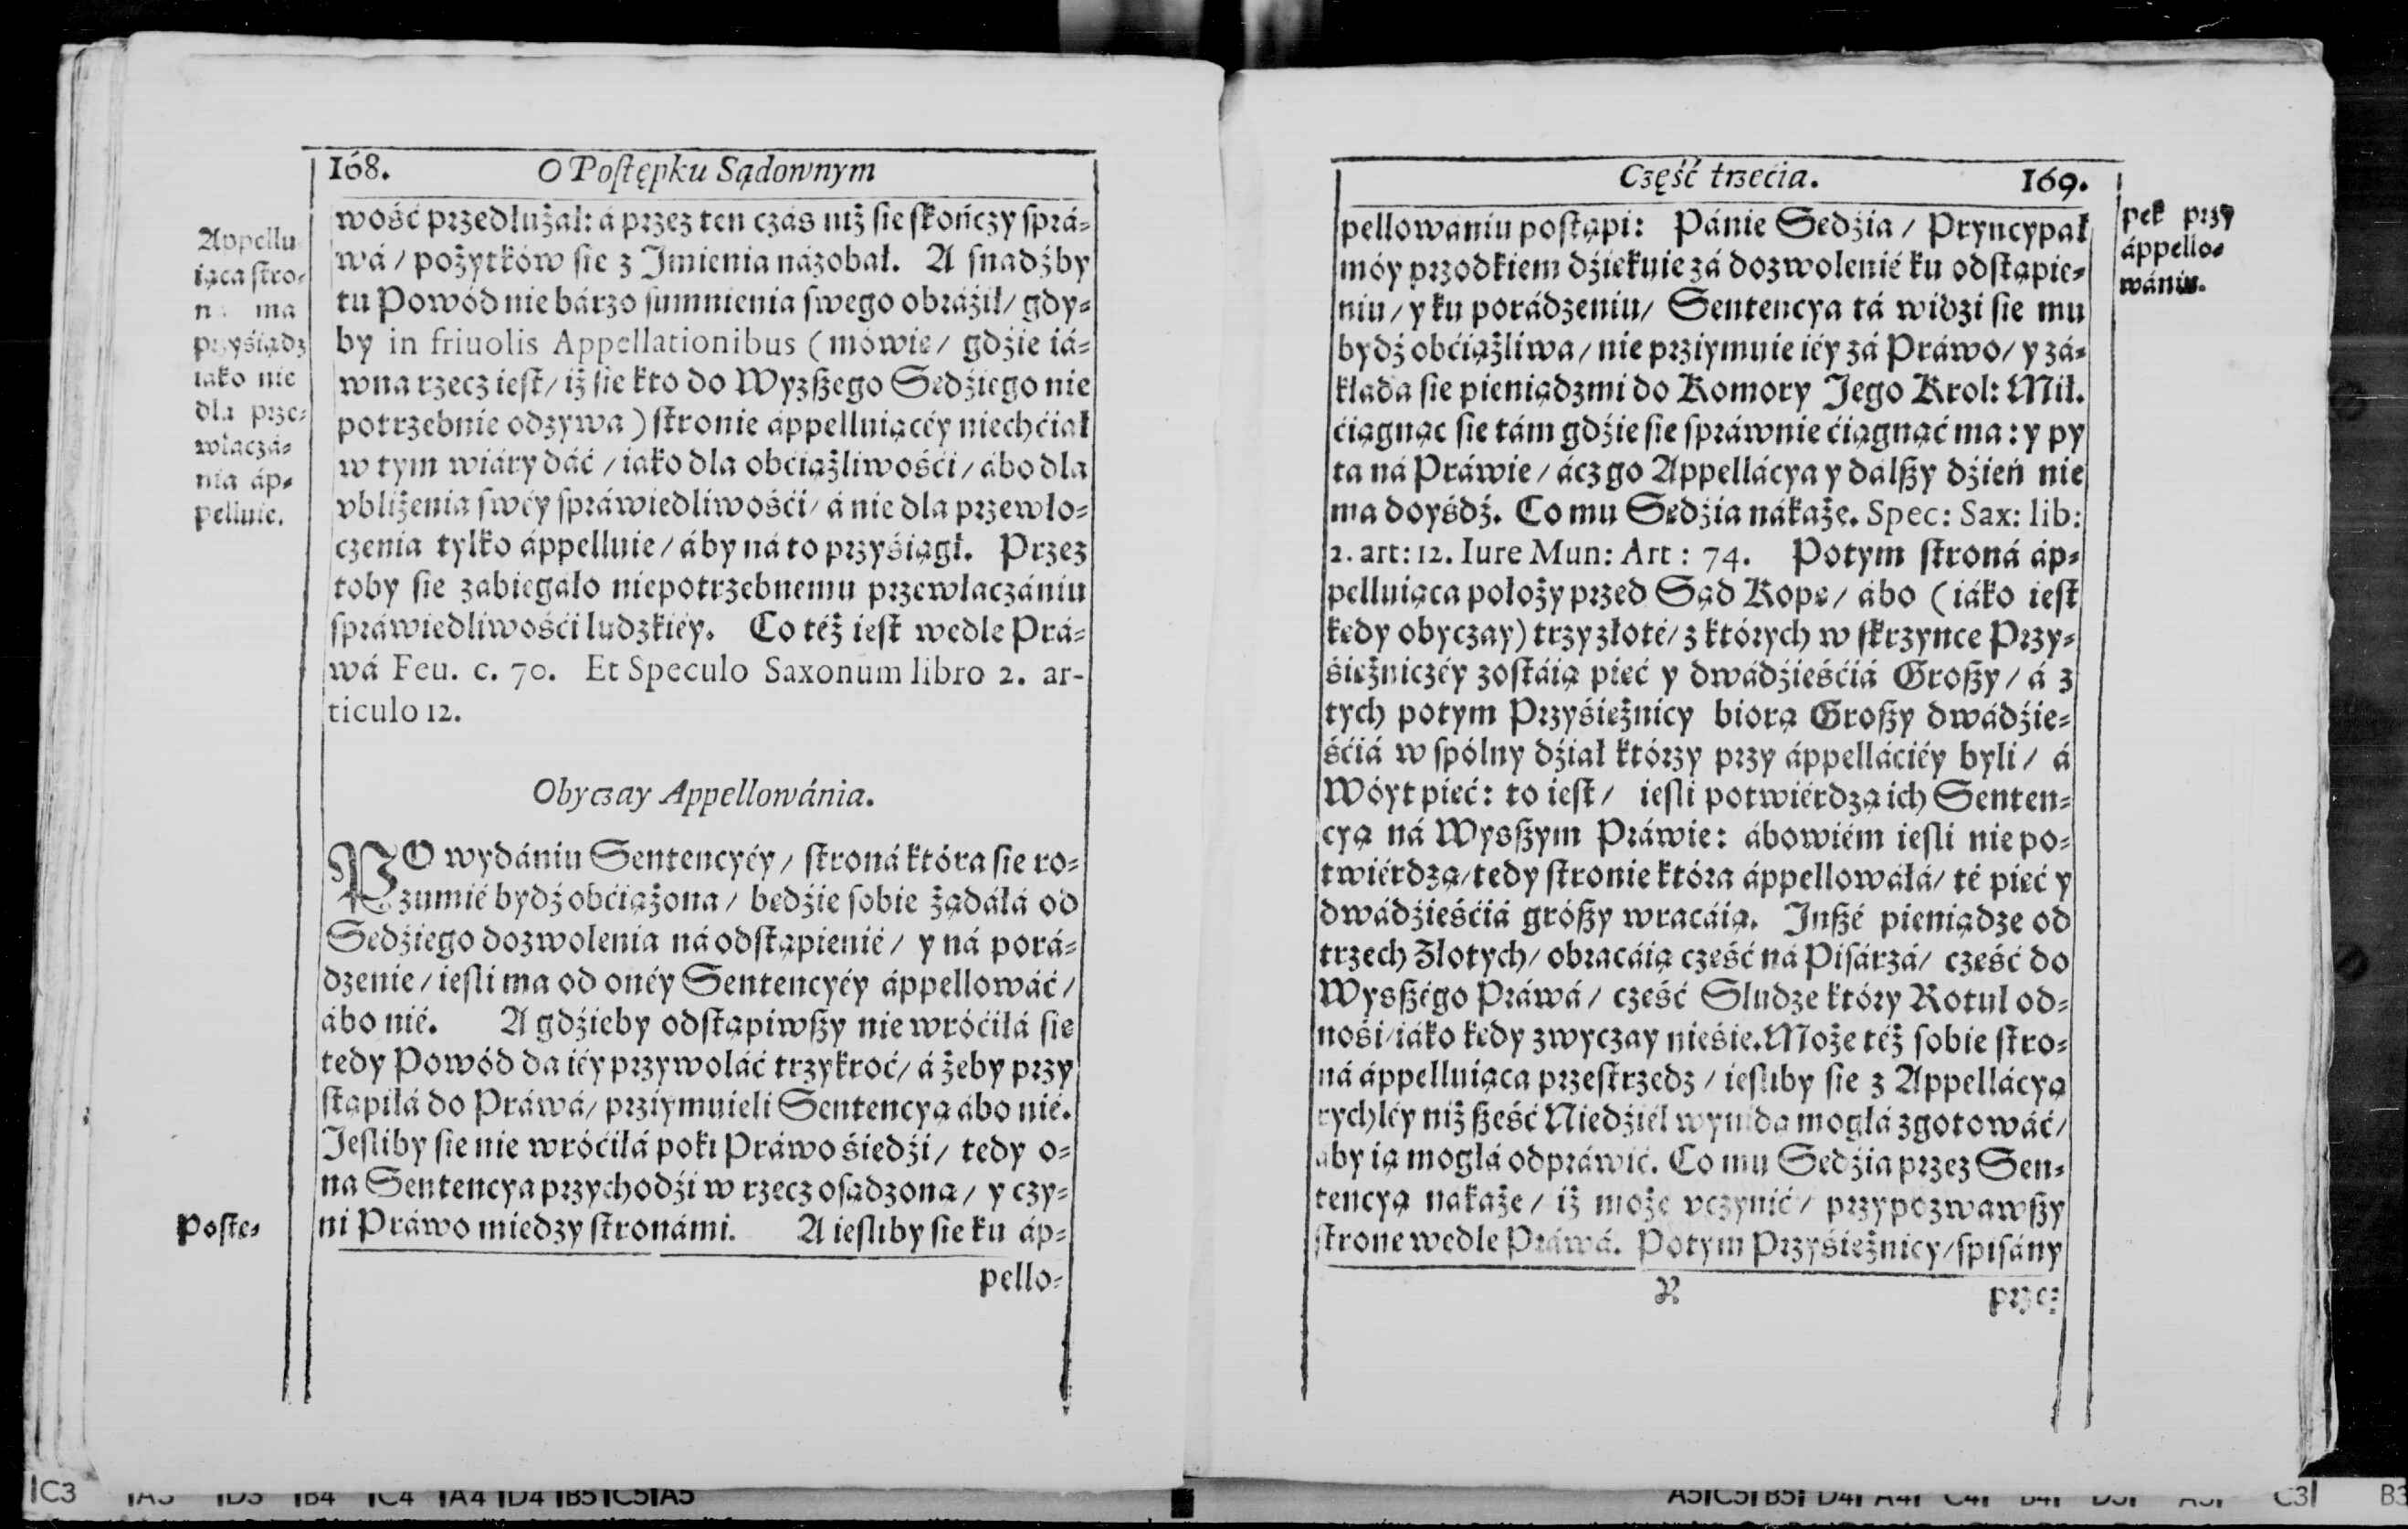 168. O Postępku Sądownym
wość przedłużał: á przez ten czás niż sie skończy sprá-
wá / pożytków sie z Jmienia názobał. A snadźby
tu Powód nie bárzo sumnienia swego obráźił / gdy-
by in friuolis Appellationibus (mówię / gdźie iá-
wna rzecz iest / iż sie kto do Wyzszego Sędźiego nie
potrzebnie odzywa) stronie áppelluiącéy niechćiał
w tym wiáry dáć / iako dla obćiążliwośći / ábo dla
vbliżenia swéy spráwiedliwośći / á nie dla przewło-
czenia tylko áppelluie / áby ná to przyśiągł. Przez
toby sie zabiegáło niepotrzebnemu przewłaczániu
spráwiedliwośći ludzkiéy. Co téż iest wedle Prá-
wá Feu. c. 70. Et Speculo Saxonum libro 2. ar-
ticulo 12.
Appellu-
iąca stro-
ma
przyśiądz
iako nie
dla prze-
właczá-
nia áp-
pelluie.
Obyczay Appellowánia.
PO wydániu Sentencyéy / stroná która sie ro-
zumié bydź obćiążona / będźie sobie żądáłá od
Sędźiego dozwolenia ná odstąpienié / y ná porá-
dzenie / iesli ma od onéy Sentencyéy áppellowáć /
ábo nié. A gdźieby odstąpiwszy nie wróćiłá sie
tedy Powód da iéy przywoláć trzykroć / á żeby przy
stąpiłá do Práwá / prziymuieli Sentencyą ábo nié.
Jesliby sie nie wróćiłá poki Práwo śiedźi / tedy o-
na Sentencya przychodźi w rzecz osądzoną / y czy-
ni Práwo miedzy stronámi. A iesliby sie ku áp-
Postę-
pello-
Część trzećia. 169.
pellowaniu postąpi: Pánie Sędźia / Pryncypał
móy przodkiem dźiękuie zá dozwolenié ku odstąpie-
niu / y ku porádzeniu / Sentencya tá widzi sie mu
bydź obćiążliwa / nie prziymuie iéy zá Práwo / y zá-
kłada sie pieniądzmi do Komory Jego Krol: Mił.
ćiągnąc sie tám gdźie sie spráwnie ćiągnąć ma: y py
ta ná Práwie / ácz go Appellácya y dálszy dźień nie
ma doyśdź. Co mu Sędźia nákaże. Spec: Sax: lib:
2. art: 12. Iure Mun: Art : 74. Potym stroná áp-
pelluiąca położy przed Sąd Kopę / ábo (iáko iest
kędy obyczay) trzy złoté / z których w skrzynce Przy-
śiężniczéy zostáią pięć y dwádźieśćiá Groszy / á z
tych potym Przyśiężnicy biorą Groszy dwádźie-
śćiá w spólny dźiał którzy przy áppelláciéy byli / á
Wóyt pięć: to iest / iesli potwiérdzą ich Senten-
cyą ná Wysszym Práwie: ábowiém iesli nie po-
twiérdzą / tedy stronie która áppellowáłá / té pięć y
dwádźieśćiá grószy wracáią. Jnszé pieniądze od
trzech Złotych / obracáią część ná Pisárzá / część do
Wysszégo Práwá / część Słudze który Rotuł od-
nośi / iáko kędy zwyczay nieśie. Może téż sobie stro-
ná áppelluiąca przestrzedz / iesliby sie z Appellácyą
rychléy niż sześć Niedźiél wynidą mogłá zgotowáć /
aby ią mogłá odpráwić. Co mu Sędźia przez Sen-
tencyą nakaże / iż może vczynić / przypozwawszy
stronę wedle Práwá. Potym Przyśiężnicy / spisány
pek przy
áppello-
wániu.
R prze-